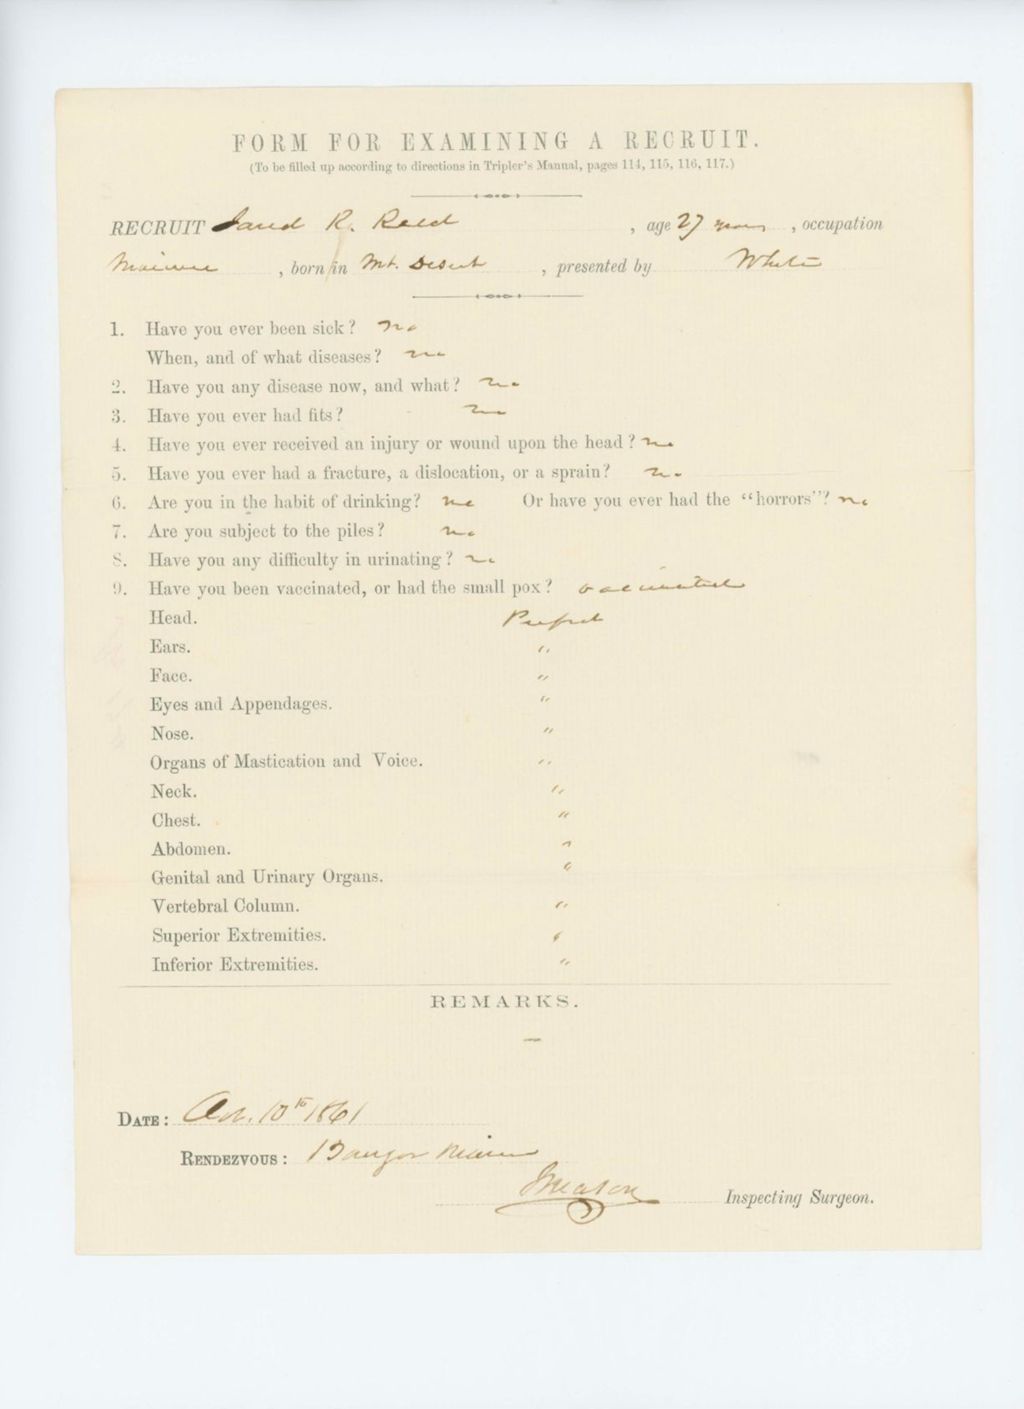 FORM FOR EXAMINING A RECRUIT.
(To be filled up according to directions in Tripler's Manual, pages 114, 115, 116, 117.)
RECRUIT R. , age 27 years , occupation
, born in Mt. Desert , presented by White
1. Have you ever been sick? no
When, and of what diseases? no
2. Have you any disease now, and what? no
3. Have you ever had fits? no
4. Have you ever received an injury or wound upon the head? no
5. Have you ever had a fracture, a dislocation, or a sprain? no
6. Are you in the habit of drinking? no Or have you ever had the "horrors"? no
7. Are you subject to the piles? no
8. Have you any difficulty in urinating? no
9. Have you been vaccinated, or had the small pox? vaccinated
Head. Perfect
Ears. "
Face. "
Eyes and Appendages. "
Nose. "
Organs of Mastication and Voice. "
Neck. "
Chest. "
Abdomen. "
Genital and Urinary Organs. "
Vertebral Column. "
Superior Extremities. "
Inferior Extremities. "
REMARKS.
—
DATE: 10th 1861
RENDEZVOUS: Bangor Maine
Mason Inspecting Surgeon.